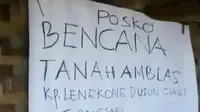 POSKO
BENCANA
TANAH AMBLAS
KP. LENGKONG DUSUN CIAWI